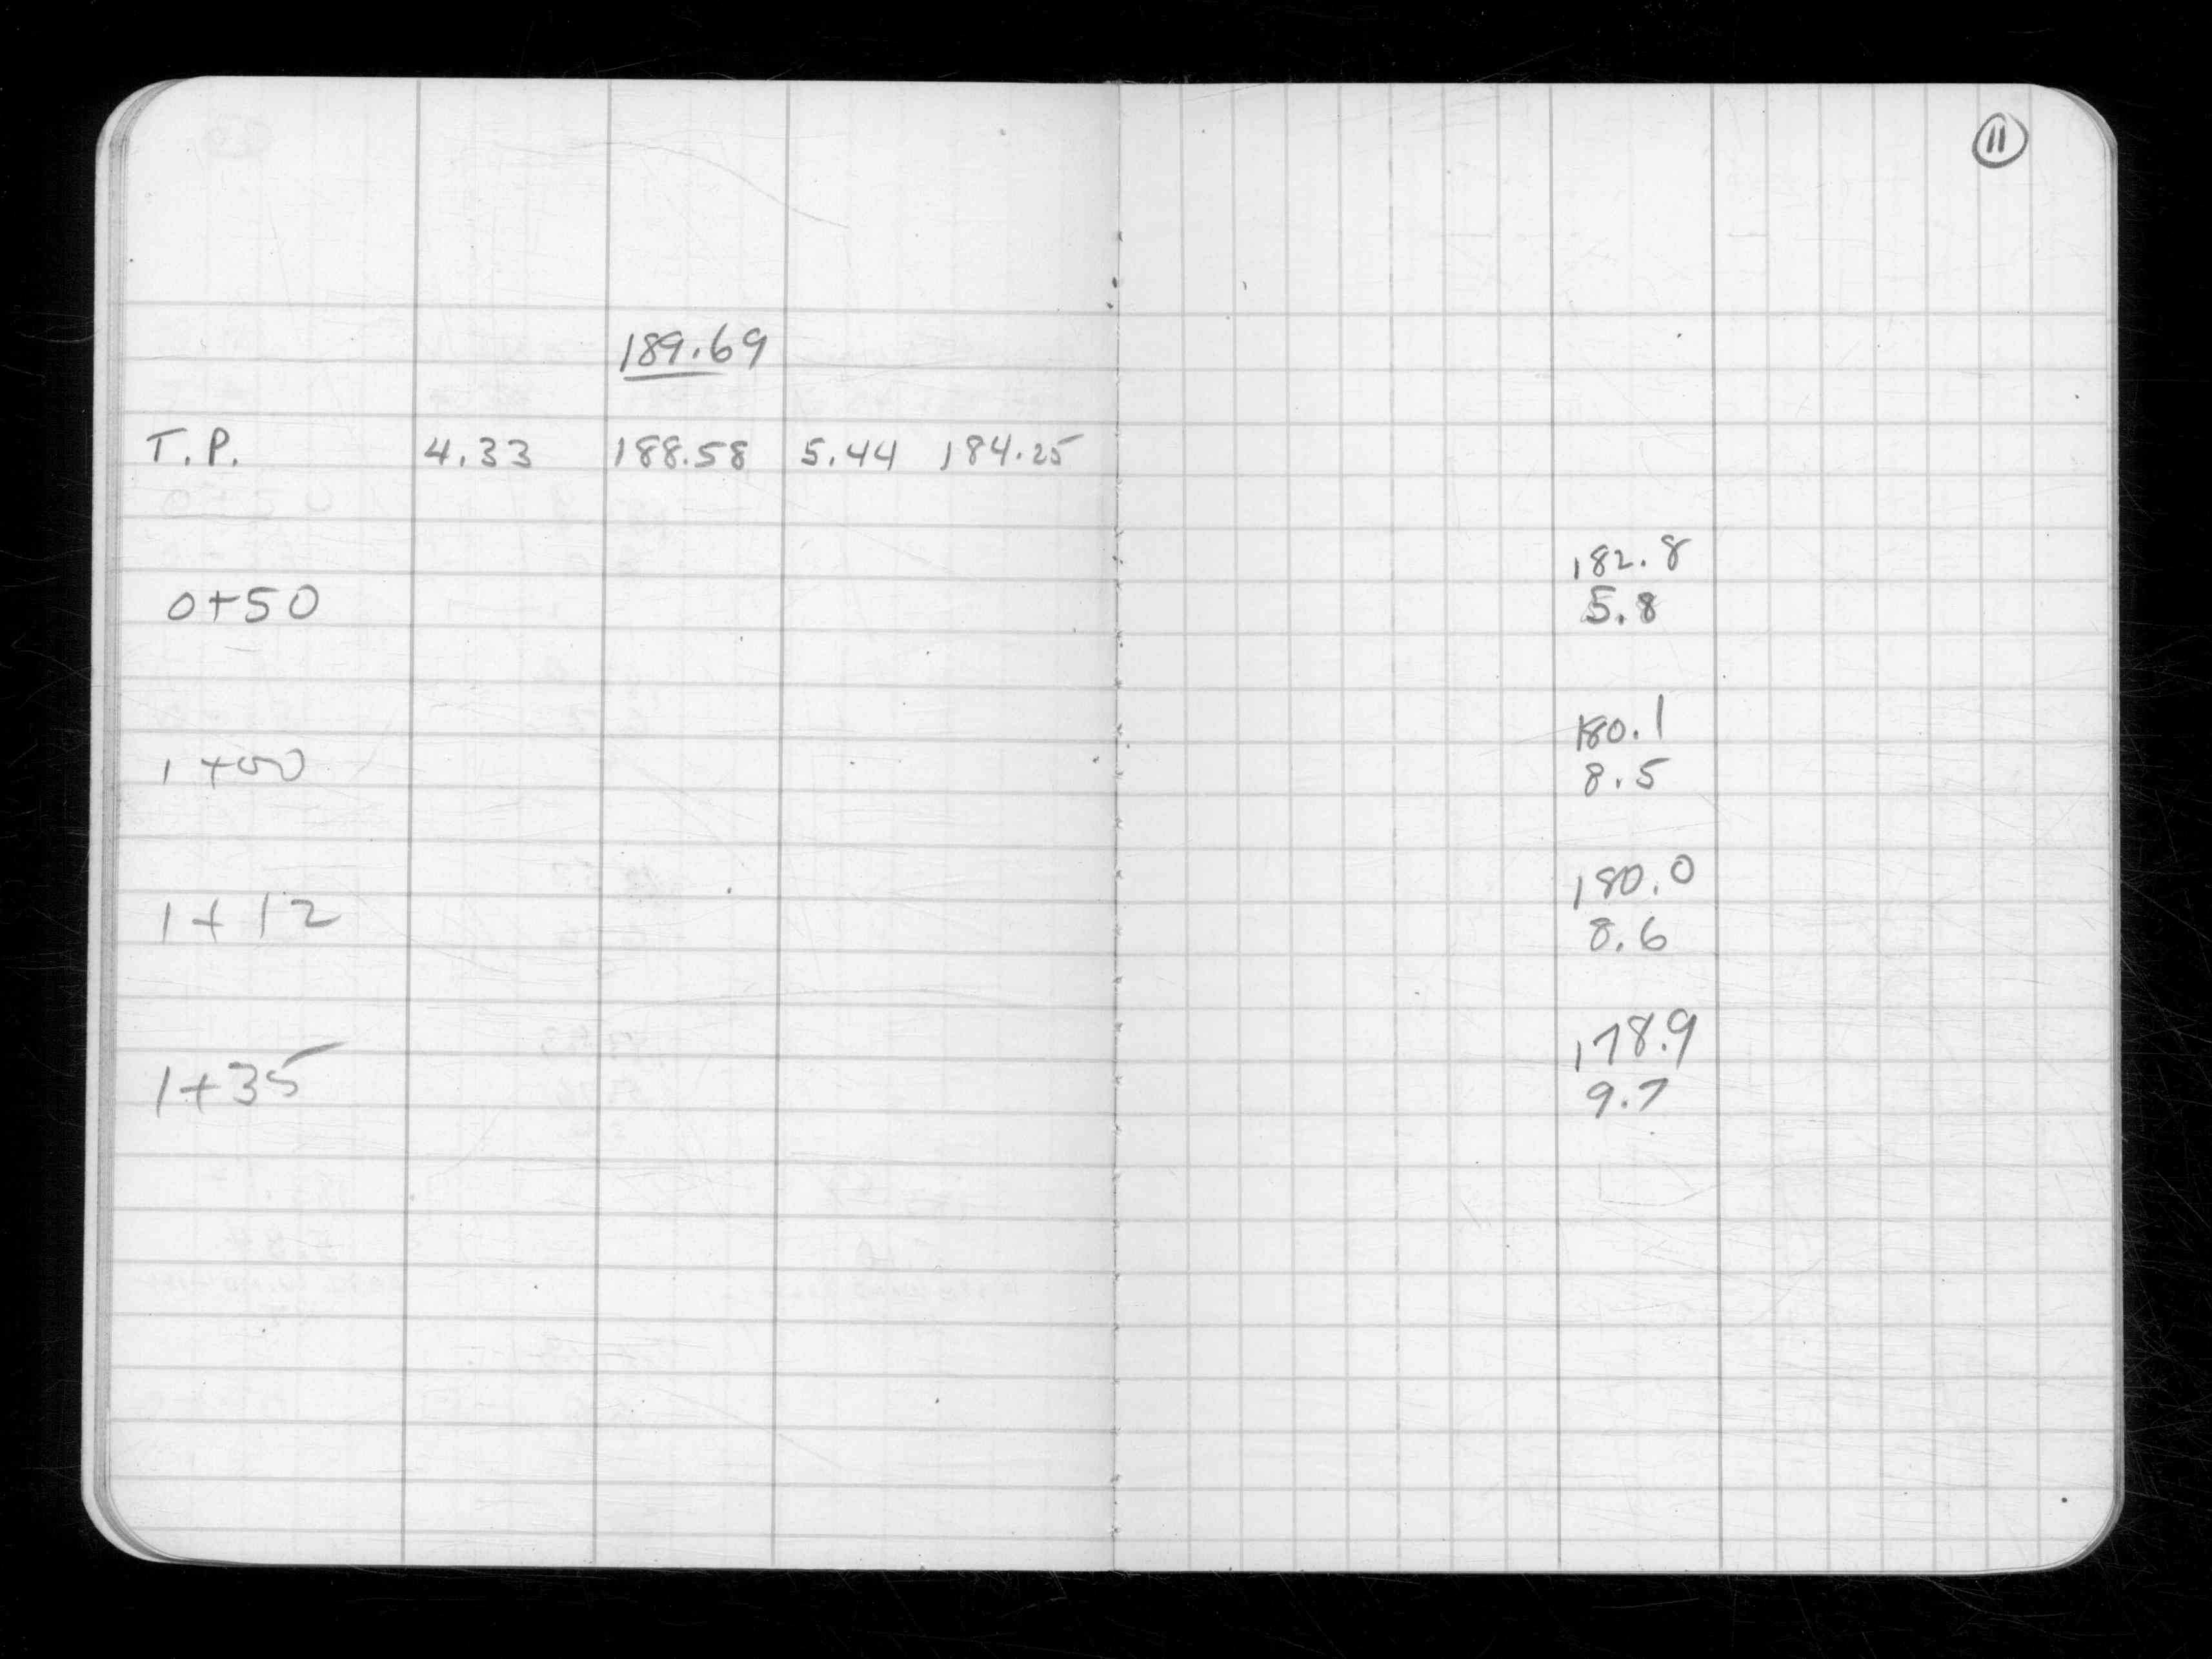 11
189.69
T.P. 4.33 188.58 5.44 184.25
182.8
0+50 5.8
180.1
1+00 8.5
180.0
1+12 8.6
178.9
1+35 9.7